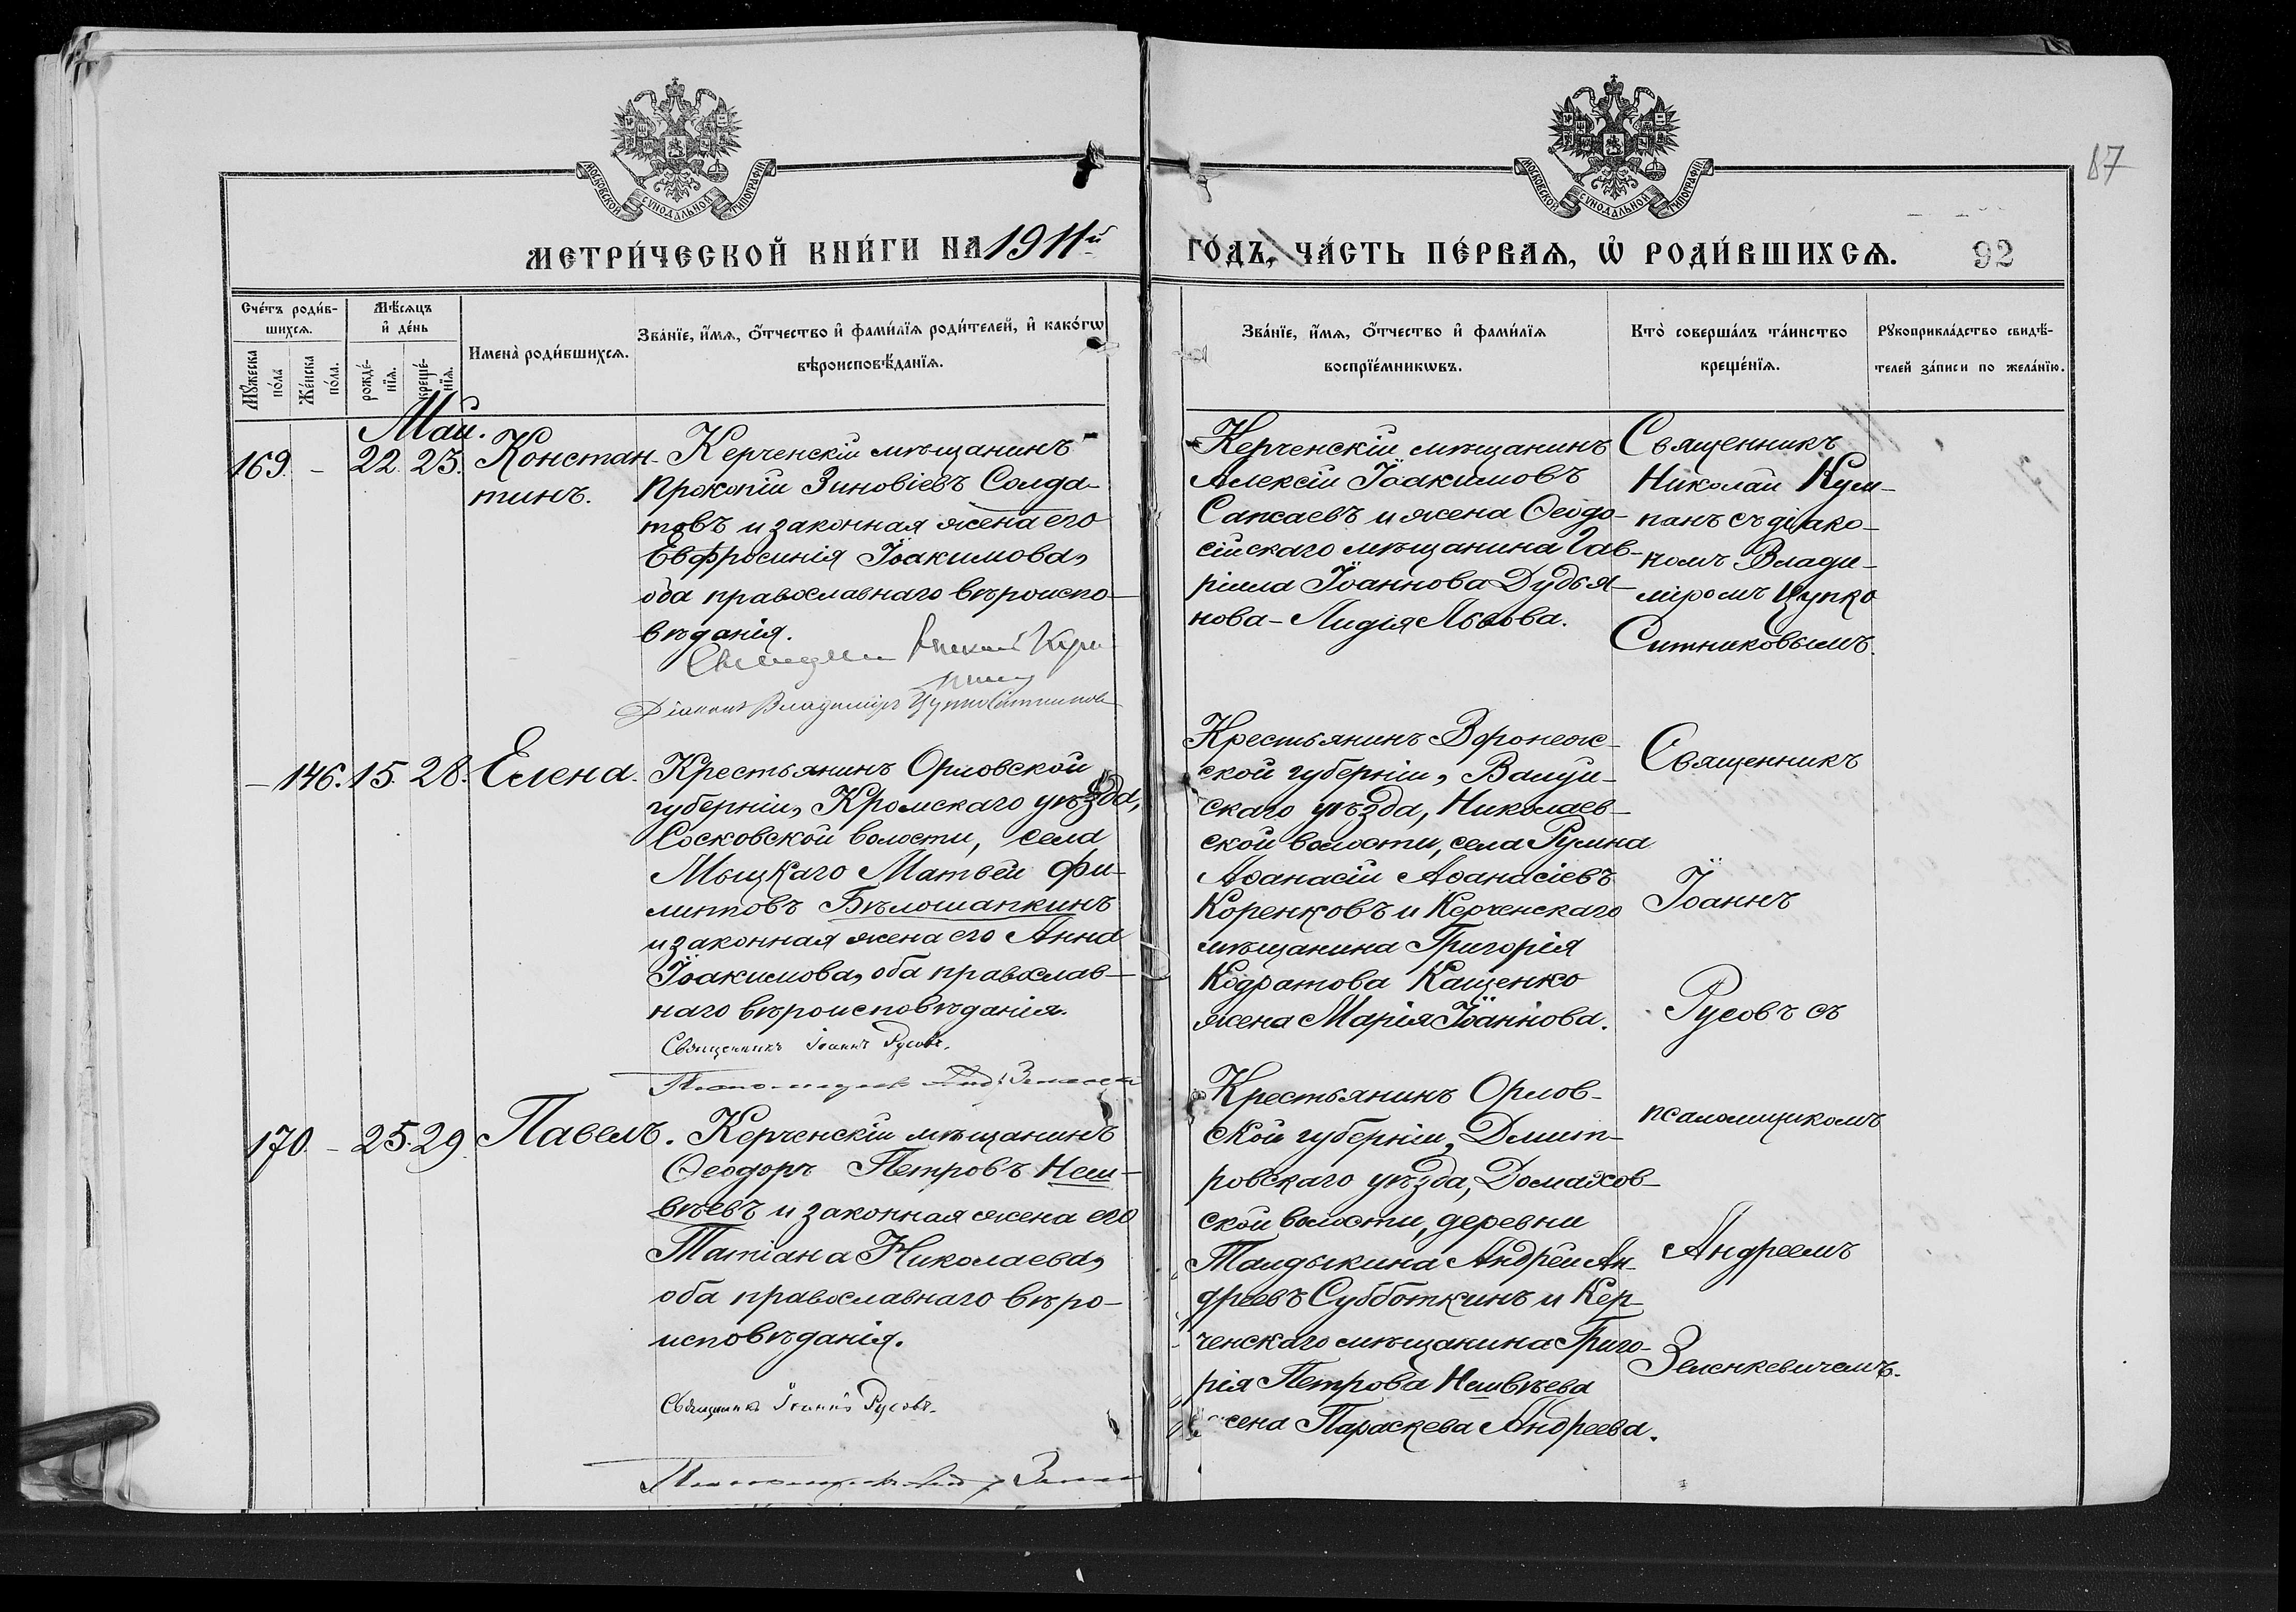 87
МОСКОВСКОЙ СѴНОДАЛЬНОЙ ТИПОГРАФІИ
МОСКОВСКОЙ СѴНОДАЛЬНОЙ ТИПОГРАФІИ
МЕТРИ́ЧЕСКОЙ КНИ́ГИ НА 1911й
ГО́ДЪ, ЧА́СТЬ ПЕ́РВАѦ, Ѡ҆ РОДИ́ВШИХСѦ.
92
Сче́тъ роди́в-
шихсѧ.
Мꙋ́жеска
по́ла
Же́нска
по́ла.
Мѣ́сѧцъ
и҆ де́нь
рожде́-
нїѧ.
креще́-
нїѧ.
Имена̀ роди́вшихсѧ.
Зва́нїе, и҆́мѧ, ѻ҆́тчество и҆ фами́лїѧ роди́телей, и҆ како́гѡ
вѣроисповѣ́данїѧ.
Зва́нїе, и҆́мѧ, ѻ҆́тчество и҆ фами́лїѧ
воспрїе́мникѡвъ.
Кто̀ соверша́лъ та́инство
креще́нїѧ.
Рꙋкоприкла́дство свидѣ́-
телей за́писи по жела́нїю.
Май.
169. – 22. 23.
Констан-
тинъ.
Керченскій мѣщанинъ
Прокопій Зиновіевъ Солда-
товъ и законная жена его
Евфросинія Іоакимова,
оба православнаго вѣроиспо-
вѣданія.
Священникъ Николай Кум-
панъ
Діаконъ Владиміръ Цупко Ситниковъ
Керченскій мѣщанинъ
Алексій Іоакимовъ
Сапсаевъ и жена Ѳеодо-
сійскаго мѣщанина Гав-
ріила Іоаннова Дудья-
нова – Лидія Львова.
Священникъ
Николай Кум-
панъ съ діако-
номъ Влади-
міромъ Цупко
Ситниковымъ.
– 146. 15. 28.
Елена.
Крестьянинъ Орловской
губерніи, Кромскаго уѣзда,
Сосковской волости, села
Мыцкаго Матвей Фи-
липповъ Бѣлошапкинъ
и законная жена его Анна
Іоакимова, оба православ-
наго вѣроисповѣданія.
Священникъ Іоаннъ Русовъ.
Псаломщикъ Анд.
Крестьянинъ Воронеж-
ской губерніи, Валуй-
скаго уѣзда, Николаев-
ской волости, села Рулина
Аѳанасій Аѳанасіевъ
Коренковъ и Керченскаго
мѣщанина Григорія
Кодратова Кащенко
жена Марія Іоаннова.
Священникъ
Іоаннъ
Русовъ съ
псаломщикомъ
Андреемъ
Зеленкевичемъ.
170. – 25. 29.
Павелъ.
Керченскій мѣщанинъ
Ѳеодоръ Петровъ Неш-
вѣевъ и законная жена его
Татіана Николаева,
оба православнаго вѣро-
исповѣданія.
Священникъ Іоаннъ Русовъ.
Псаломщикъ
Крестьянинъ Орлов-
ской губерніи, Дмит-
ровскаго уѣзда, Домахов-
ской волости, деревни
Талдыкина Андрей Ан-
дреевъ Субботкинъ и Кер-
ченскаго мѣщанина Григо-
рія Петрова Нешвѣева
жена Параскева Андреева.